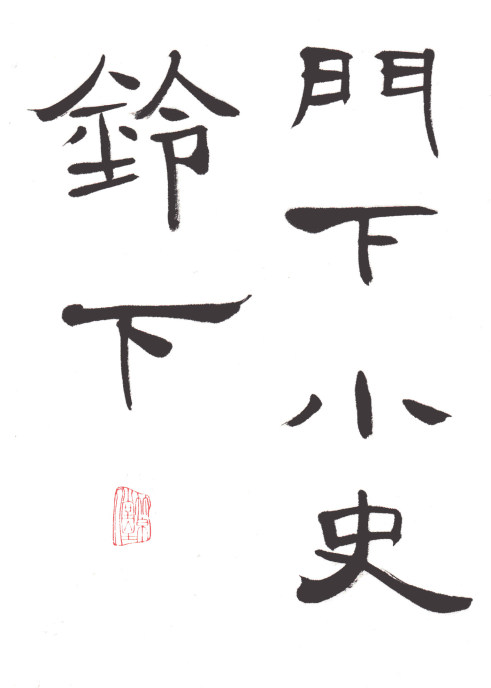 門下小史
鈴下